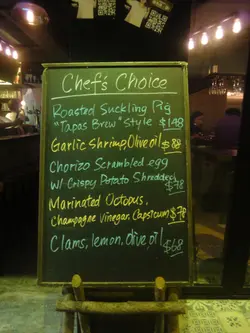 Chef's Choice
Roasted Suckling Pig
"Tapas Brew" Style $148
Garlic Shrimp, Olive oil $88
Chorizo Scrambled egg
W/ Crispy Potato Shredded $78
Marinated Octopus,
Champagne Vinegar, Capsicum $78
Clams, lemon, olive oil $68